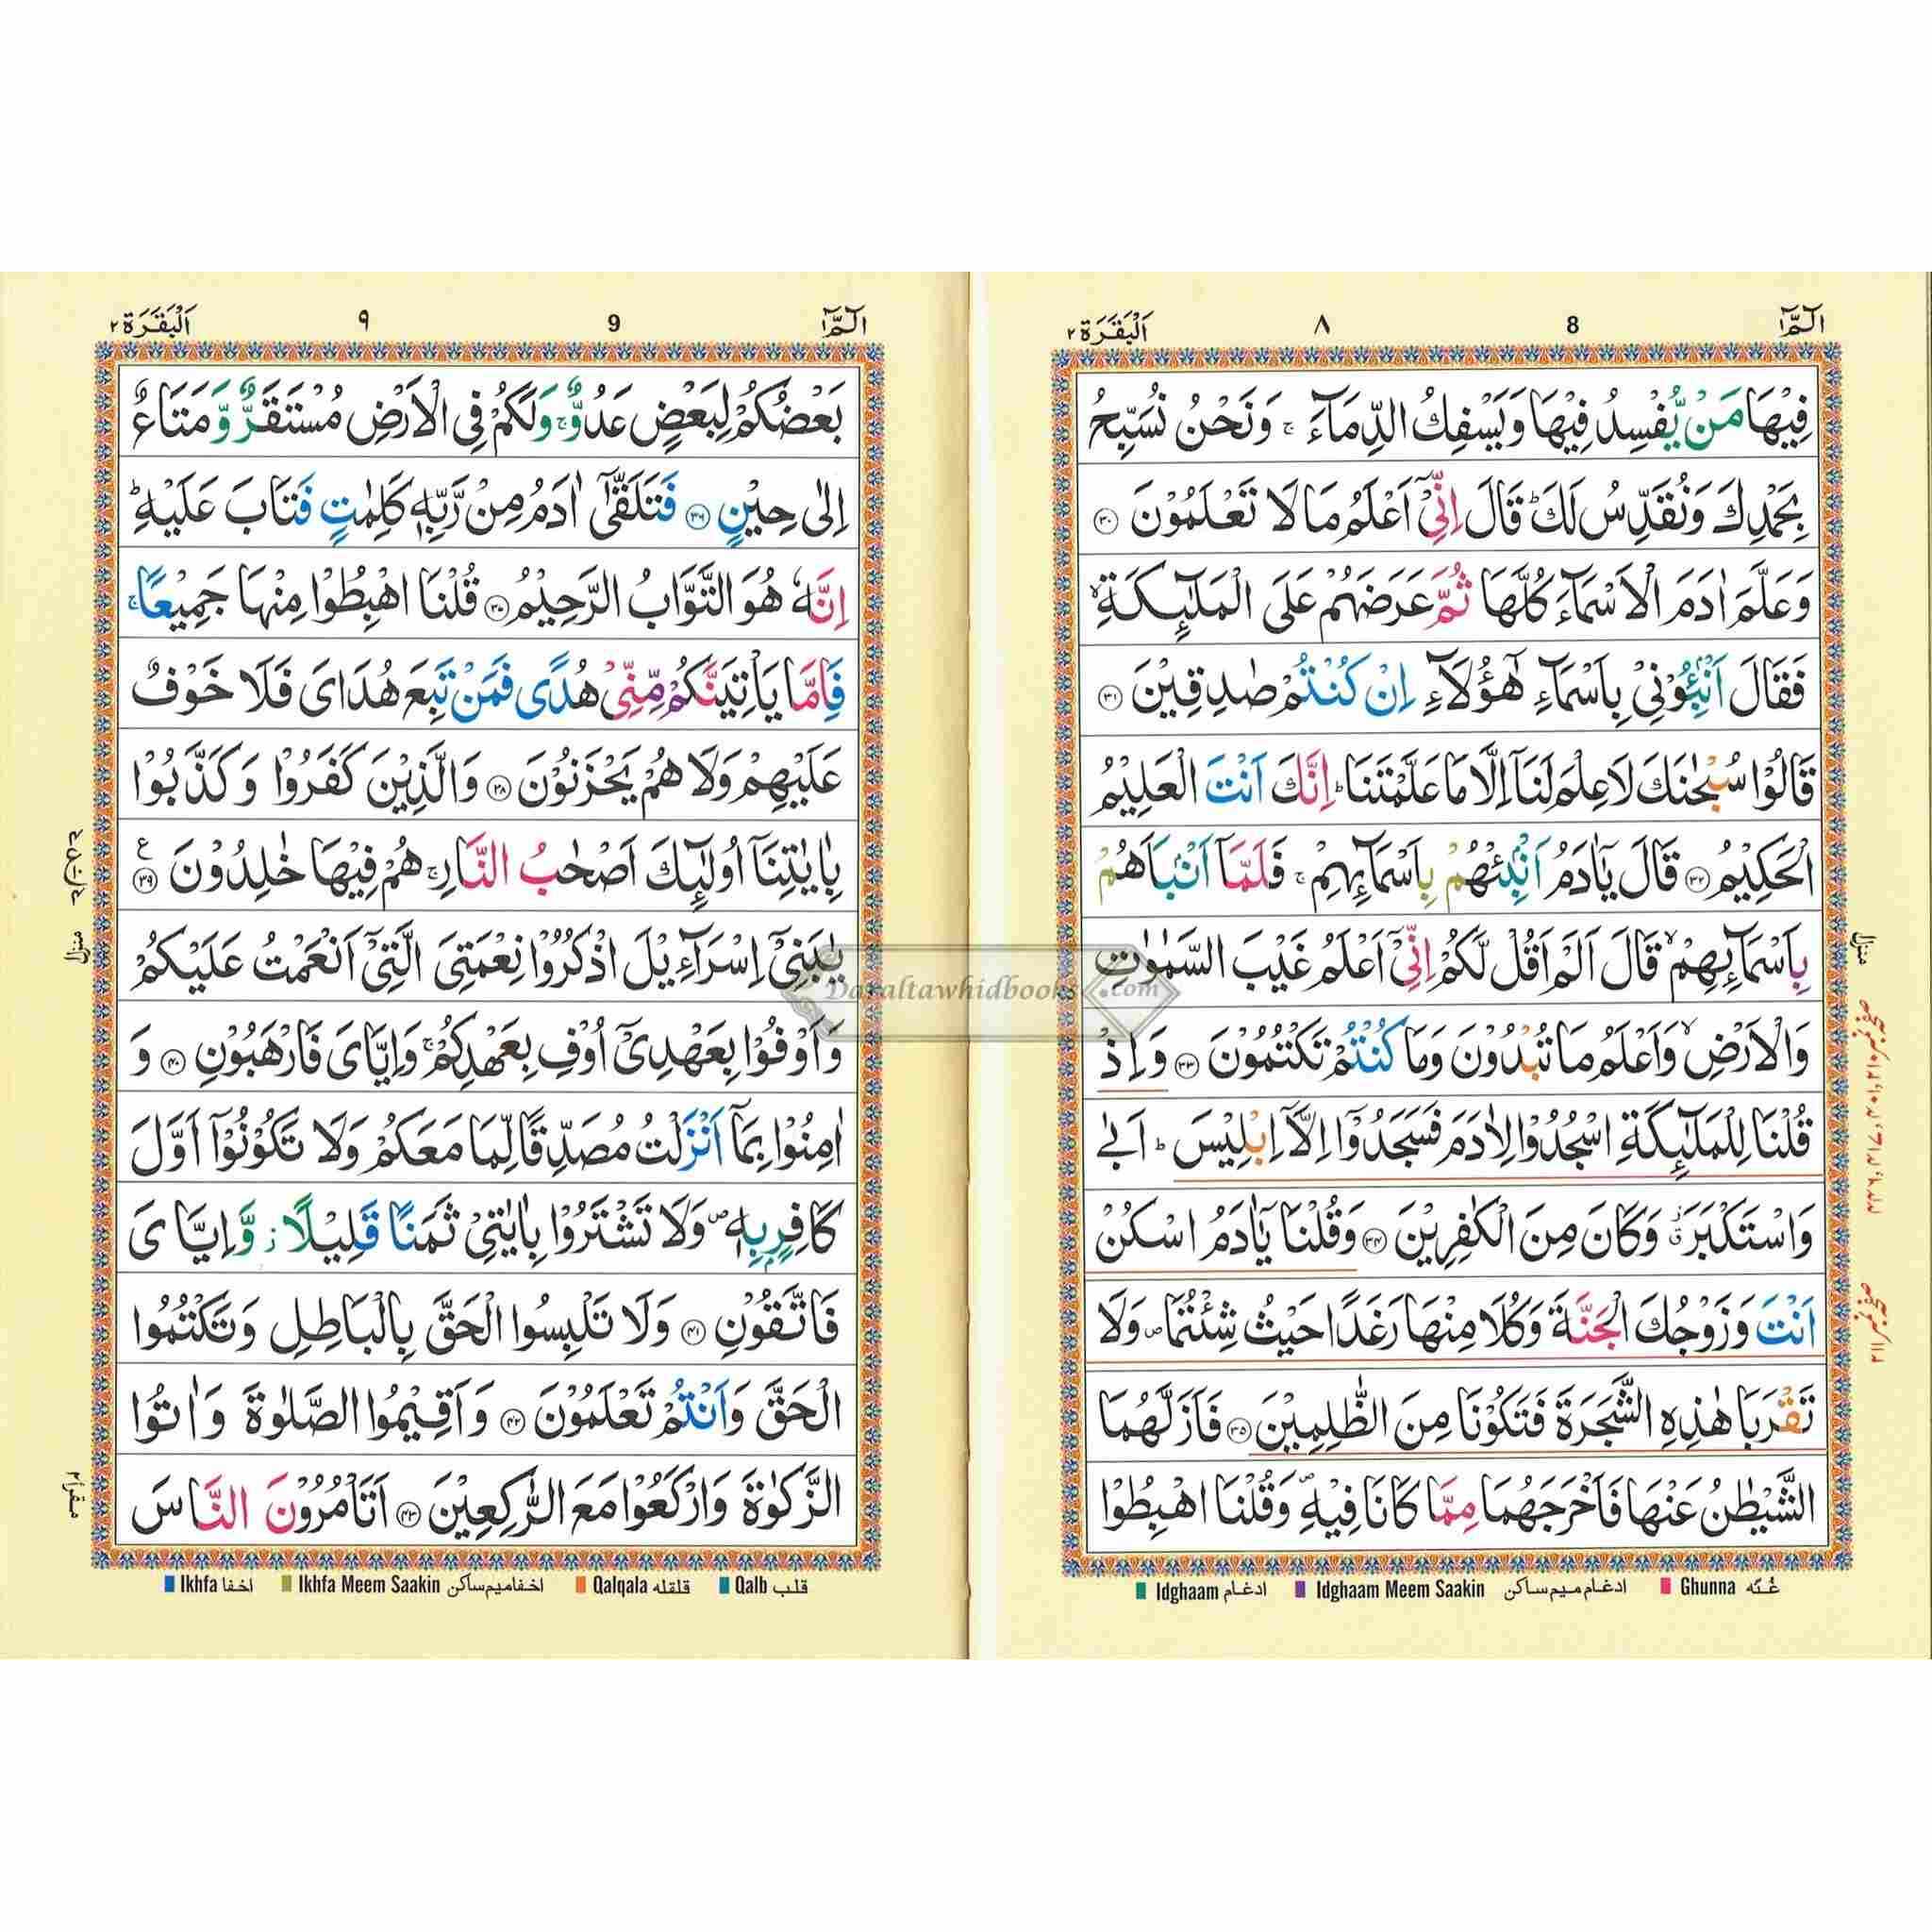 الٓمّٓ ۱
8
۸
اَلْبَقَرَة ۲
فِيْهَا مَنْ يُّفْسِدُ فِيْهَا وَيَسْفِكُ الدِّمَآءَ ۚ وَنَحْنُ نُسَبِّحُ
بِحَمْدِكَ وَنُقَدِّسُ لَكَ ؕ قَالَ اِنِّيْٓ اَعْلَمُ مَا لَا تَعْلَمُوْنَ ﴿۳۰﴾
وَعَلَّمَ اٰدَمَ الْاَسْمَآءَ كُلَّهَا ثُمَّ عَرَضَهُمْ عَلَى الْمَلٰٓئِكَةِ ۙ
فَقَالَ اَنْۢبِـُٔوْنِيْ بِاَسْمَآءِ هٰٓؤُلَآءِ اِنْ كُنْتُمْ صٰدِقِيْنَ ﴿۳۱﴾
قَالُوْا سُبْحٰنَكَ لَا عِلْمَ لَنَآ اِلَّا مَا عَلَّمْتَنَا ؕ اِنَّكَ اَنْتَ الْعَلِيْمُ
الْحَكِيْمُ ﴿۳۲﴾ قَالَ يٰٓاٰدَمُ اَنْۢبِئْهُمْ بِاَسْمَآئِهِمْ ۚ فَلَمَّآ اَنْۢبَاَهُمْ
بِاَسْمَآئِهِمْ ۙ قَالَ اَلَمْ اَقُلْ لَّكُمْ اِنِّيْٓ اَعْلَمُ غَيْبَ السَّمٰوٰتِ
وَالْاَرْضِ ۙ وَاَعْلَمُ مَا تُبْدُوْنَ وَمَا كُنْتُمْ تَكْتُمُوْنَ ﴿۳۳﴾ وَاِذْ
قُلْنَا لِلْمَلٰٓئِكَةِ اسْجُدُوْا لِاٰدَمَ فَسَجَدُوْٓا اِلَّآ اِبْلِيْسَ ؕ اَبٰى
وَاسْتَكْبَرَ ۫ وَكَانَ مِنَ الْكٰفِرِيْنَ ﴿۳۴﴾ وَقُلْنَا يٰٓاٰدَمُ اسْكُنْ
اَنْتَ وَزَوْجُكَ الْجَنَّةَ وَكُلَا مِنْهَا رَغَدًا حَيْثُ شِئْتُمَا ۪ وَلَا
تَقْرَبَا هٰذِهِ الشَّجَرَةَ فَتَكُوْنَا مِنَ الظّٰلِمِيْنَ ﴿۳۵﴾ فَاَزَلَّهُمَا
الشَّيْطٰنُ عَنْهَا فَاَخْرَجَهُمَا مِمَّا كَانَا فِيْهِ ۪ وَقُلْنَا اهْبِطُوْا
Idghaam ادغام Idghaam Meem Saakin ادغام میم ساکن Ghunna غُنّہ
منزل
الٓمّٓ ۱
9
۹
اَلْبَقَرَة ۲
بَعْضُكُمْ لِبَعْضٍ عَدُوٌّ ۚ وَلَكُمْ فِي الْاَرْضِ مُسْتَقَرٌّ وَّمَتَاعٌ
اِلٰى حِيْنٍ ﴿۳۶﴾ فَتَلَقّٰٓى اٰدَمُ مِنْ رَّبِّهٖ كَلِمٰتٍ فَتَابَ عَلَيْهِ ؕ
اِنَّهٗ هُوَ التَّوَّابُ الرَّحِيْمُ ﴿۳۷﴾ قُلْنَا اهْبِطُوْا مِنْهَا جَمِيْعًا ۚ
فَاِمَّا يَاْتِيَنَّكُمْ مِّنِّيْ هُدًى فَمَنْ تَبِعَ هُدَايَ فَلَا خَوْفٌ
عَلَيْهِمْ وَلَا هُمْ يَحْزَنُوْنَ ﴿۳۸﴾ وَالَّذِيْنَ كَفَرُوْا وَكَذَّبُوْا
بِاٰيٰتِنَآ اُولٰٓئِكَ اَصْحٰبُ النَّارِ ۚ هُمْ فِيْهَا خٰلِدُوْنَ ﴿۳۹﴾ ع
يٰبَنِيْٓ اِسْرَآءِيْلَ اذْكُرُوْا نِعْمَتِيَ الَّتِيْٓ اَنْعَمْتُ عَلَيْكُمْ
وَاَوْفُوْا بِعَهْدِيْٓ اُوْفِ بِعَهْدِكُمْ ۚ وَاِيَّايَ فَارْهَبُوْنِ ﴿۴۰﴾ وَ
اٰمِنُوْا بِمَآ اَنْزَلْتُ مُصَدِّقًا لِّمَا مَعَكُمْ وَلَا تَكُوْنُوْٓا اَوَّلَ
كَافِرٍۭ بِهٖ ۪ وَلَا تَشْتَرُوْا بِاٰيٰتِيْ ثَمَنًا قَلِيْلًا ز وَّاِيَّايَ
فَاتَّقُوْنِ ﴿۴۱﴾ وَلَا تَلْبِسُوا الْحَقَّ بِالْبَاطِلِ وَتَكْتُمُوا
الْحَقَّ وَاَنْتُمْ تَعْلَمُوْنَ ﴿۴۲﴾ وَاَقِيْمُوا الصَّلٰوةَ وَاٰتُوا
الزَّكٰوةَ وَارْكَعُوْا مَعَ الرّٰكِعِيْنَ ﴿۴۳﴾ اَتَاْمُرُوْنَ النَّاسَ
Ikhfa اخفا Ikhfa Meem Saakin اخفا میم ساکن Qalqala قلقلہ Qalb قلب
Daraltawhidbooks.com